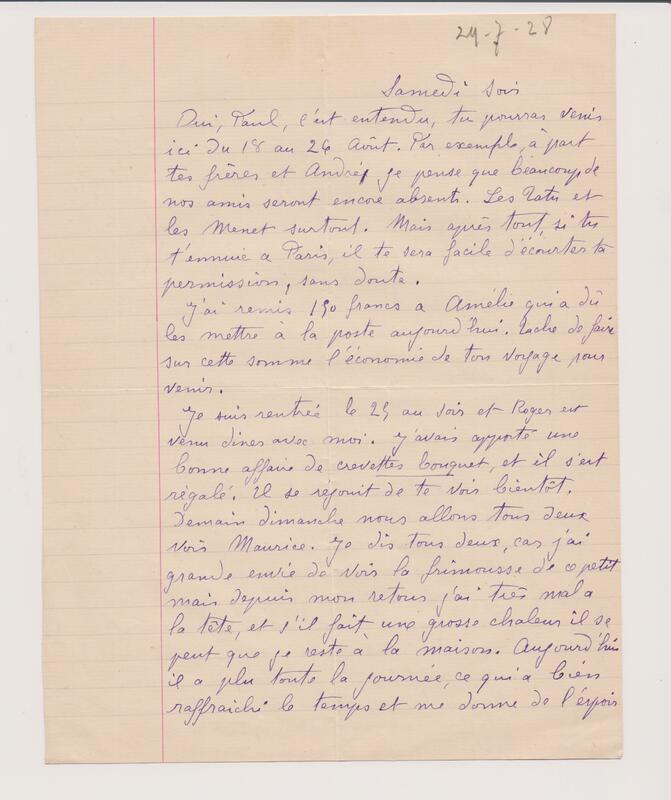 24-7-28
Samedi soir
Oui, Paul, c'est entendu, tu pourras venir
ici du 18 au 26 Août. Par exemple, à part
tes frères et André, je pense que beaucoup de
nos amis seront encore absents. Les Tatu et
les Menet surtout. Mais après tout, si tu
t'ennuie a Paris, il te sera facile d'écourter ta
permission, sans doute.
J'ai remis 150 francs a Amélie qui a dû
les mettre à la poste aujourd'hui. Tache de faire
sur cette somme l'économie de ton voyage pour
venir.
Je suis rentrée le 25 au soir et Roger est
venu diner avec moi. J'avais apporté une
bonne affaire de crevettes bouquet, et il s'est
régalé. Il se réjouit de te voir bientôt.
Demain dimanche nous allons tous deux
voir Maurice. Je dis tous deux, car j'ai
grande envie de voir la frimousse de ce petit
mais depuis mon retour j'ai très mal a
la tête, et s'il fait une grosse chaleur il se
peut que je reste à la maison. Aujourd'hui
il a plu toute la journée, ce qui a bien
raffraichi le temps et me donne de l'éspoir